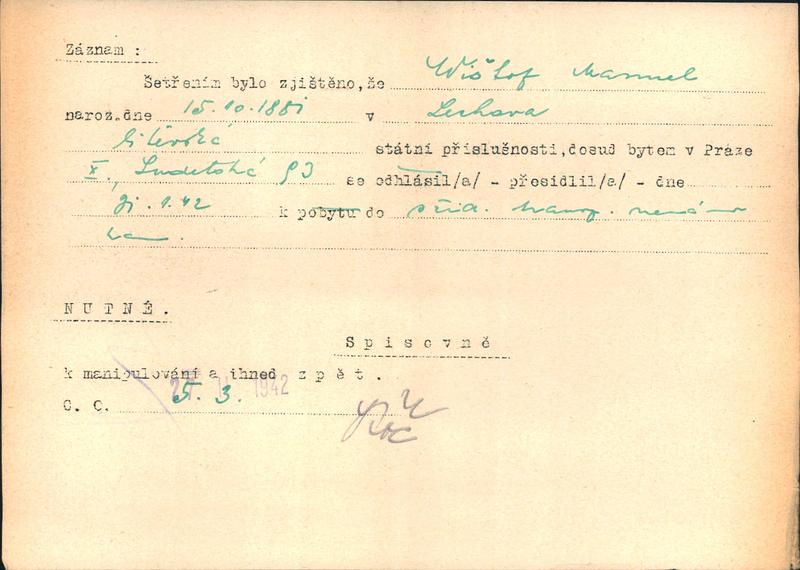 Záznam :
Šetřením bylo zjištěno, že Wištof Manuel
naroz. dne 15.10.1881 v Lechava
litevská státní příslušnosti, dosud bytem v Praze
X., Sudetská 93 se odhlásil/a/ - přesídlil/a/ - dne
31.1.42 k pobytu do zvid. transp. neznámo
kam.
NUTNÉ.
Spisovně
k manipulování a ihned zpět.
C. C. 5. 3. 1942